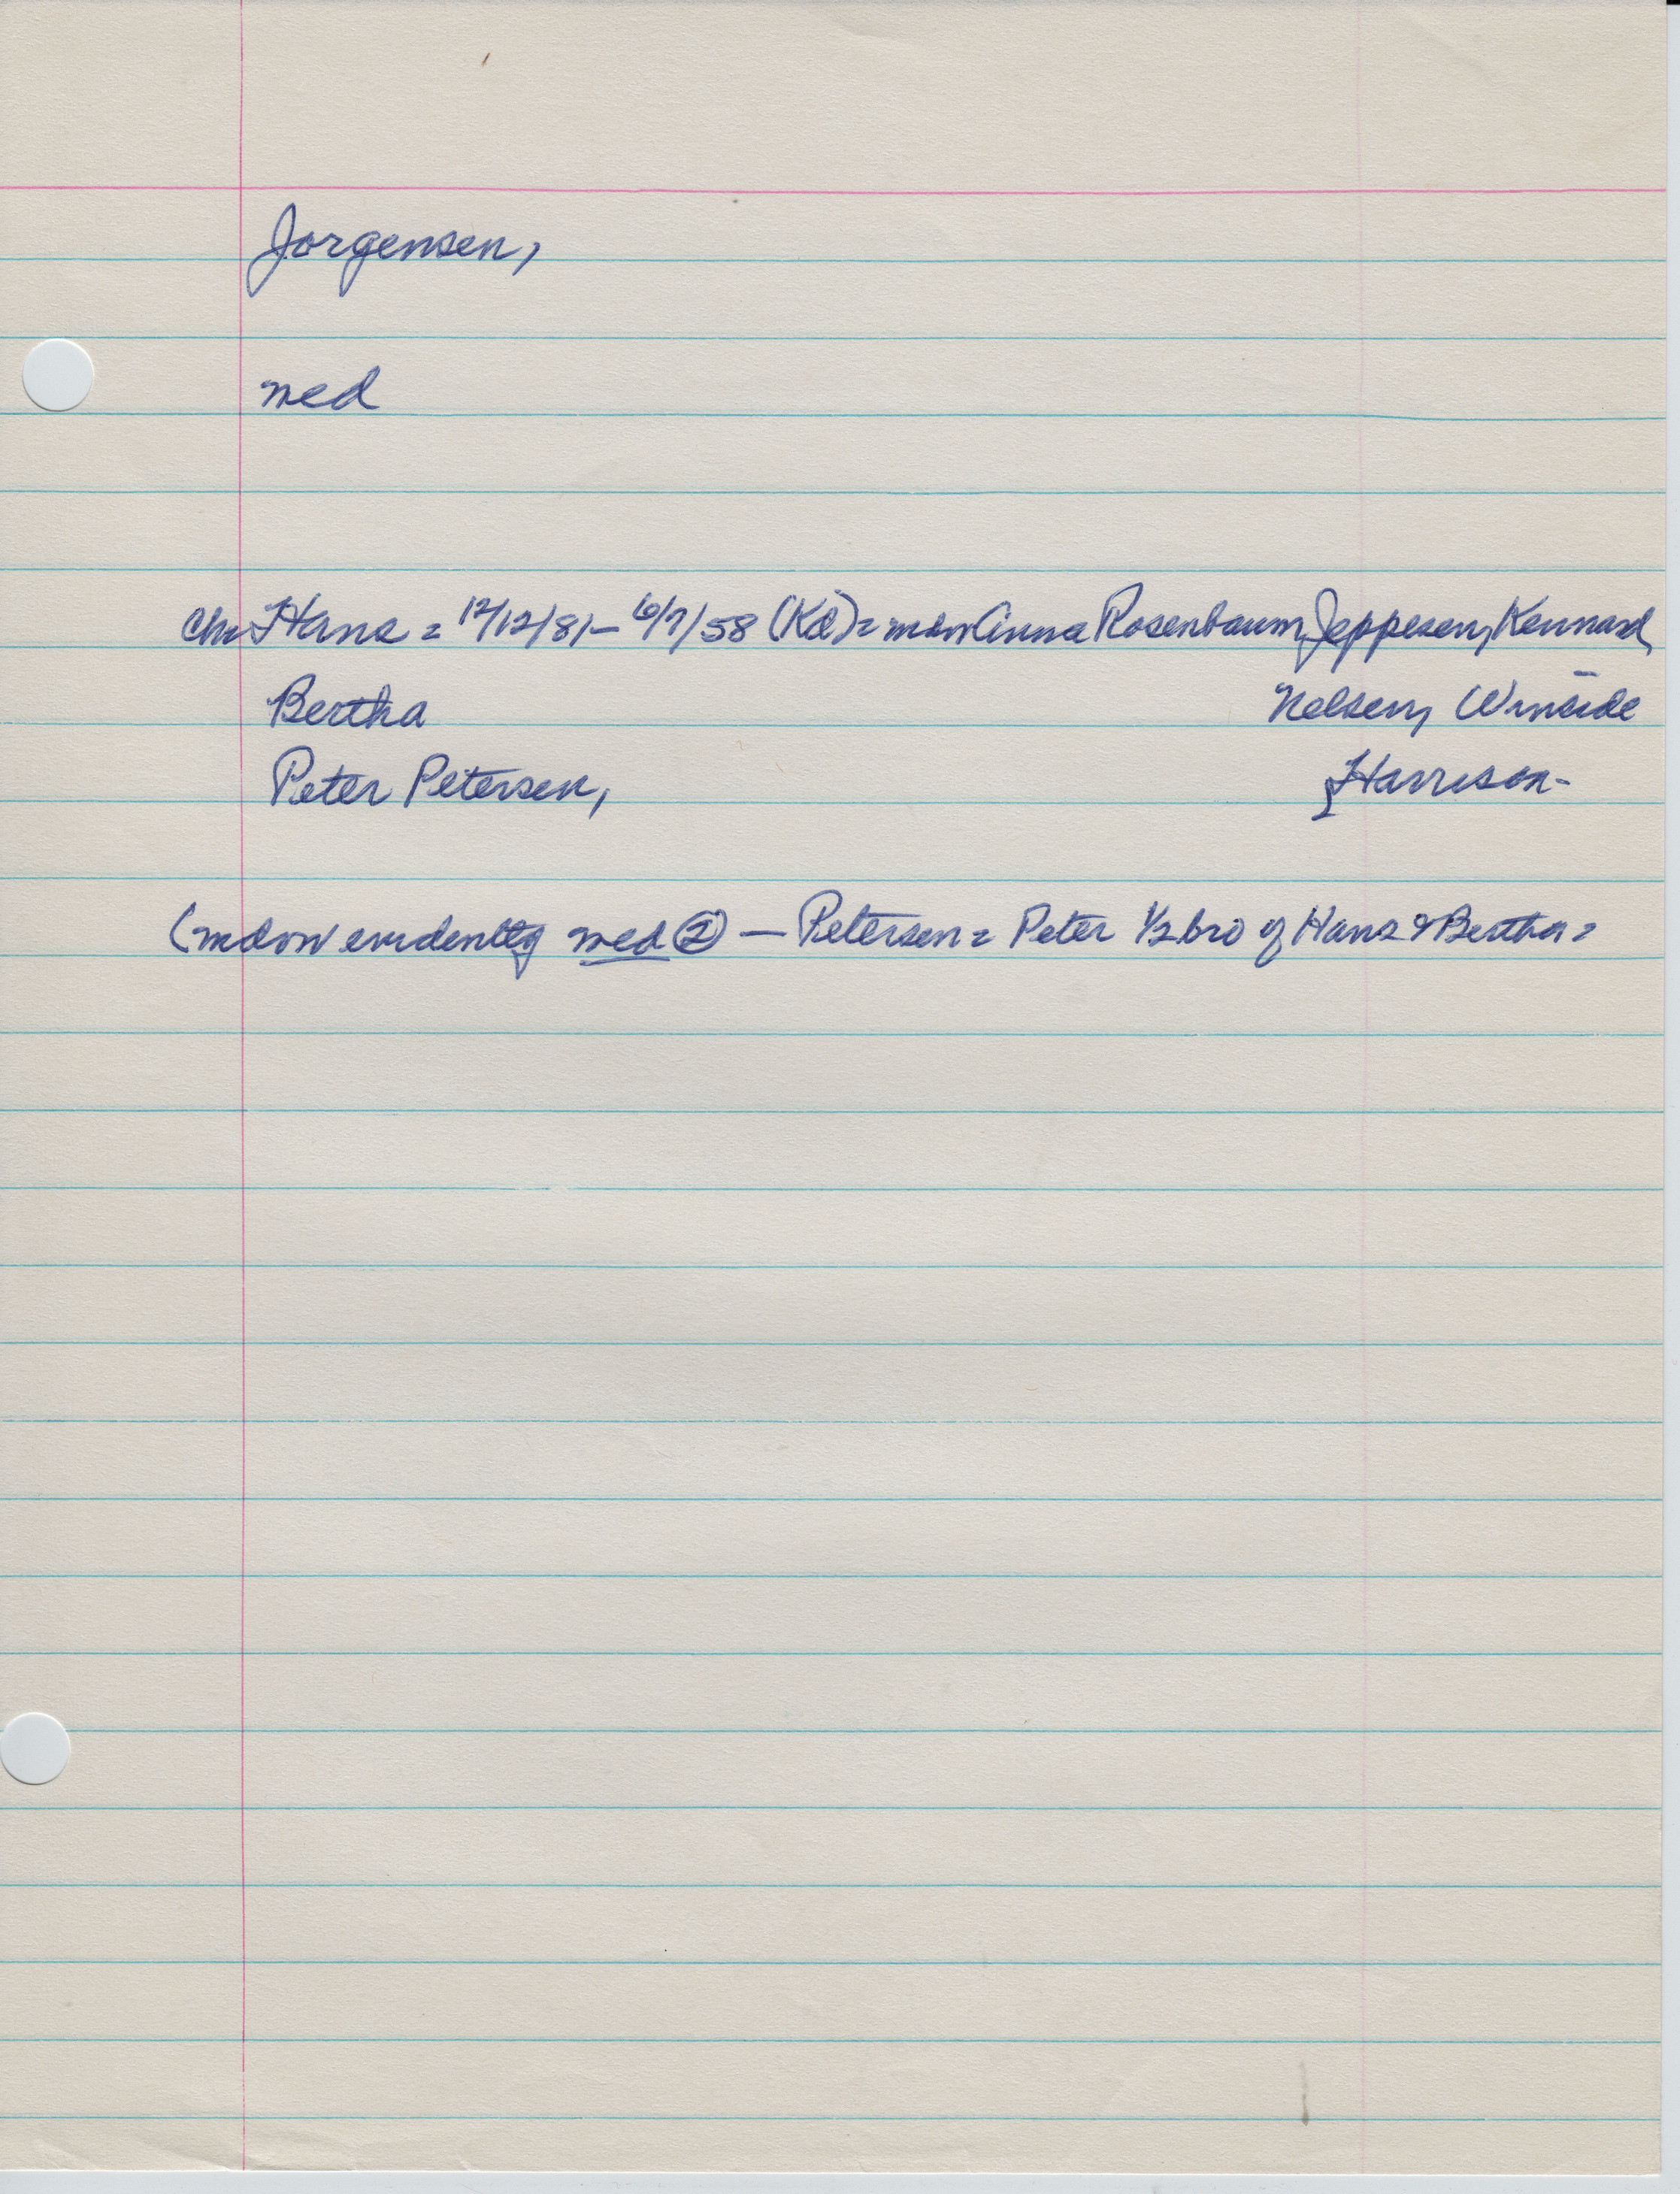 Jorgensen,
med
Chr Hans = 12/12/81 – 6/7/58 (Kd) = Anna Rosenbaum, Jeppesen, Kennard,
Bertha Nelsen, Winside
Peter Petersen, Harrison-
( evidently med ② — Petersen = Peter ½ bro of Hans & Bertha =